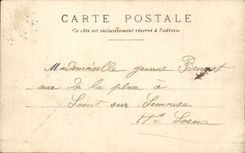 CARTE POSTALE
Ce côté est exclusivement réservé à l'adresse
Mademoiselle Jeanne
rue de la place à
Pont sur
Hte